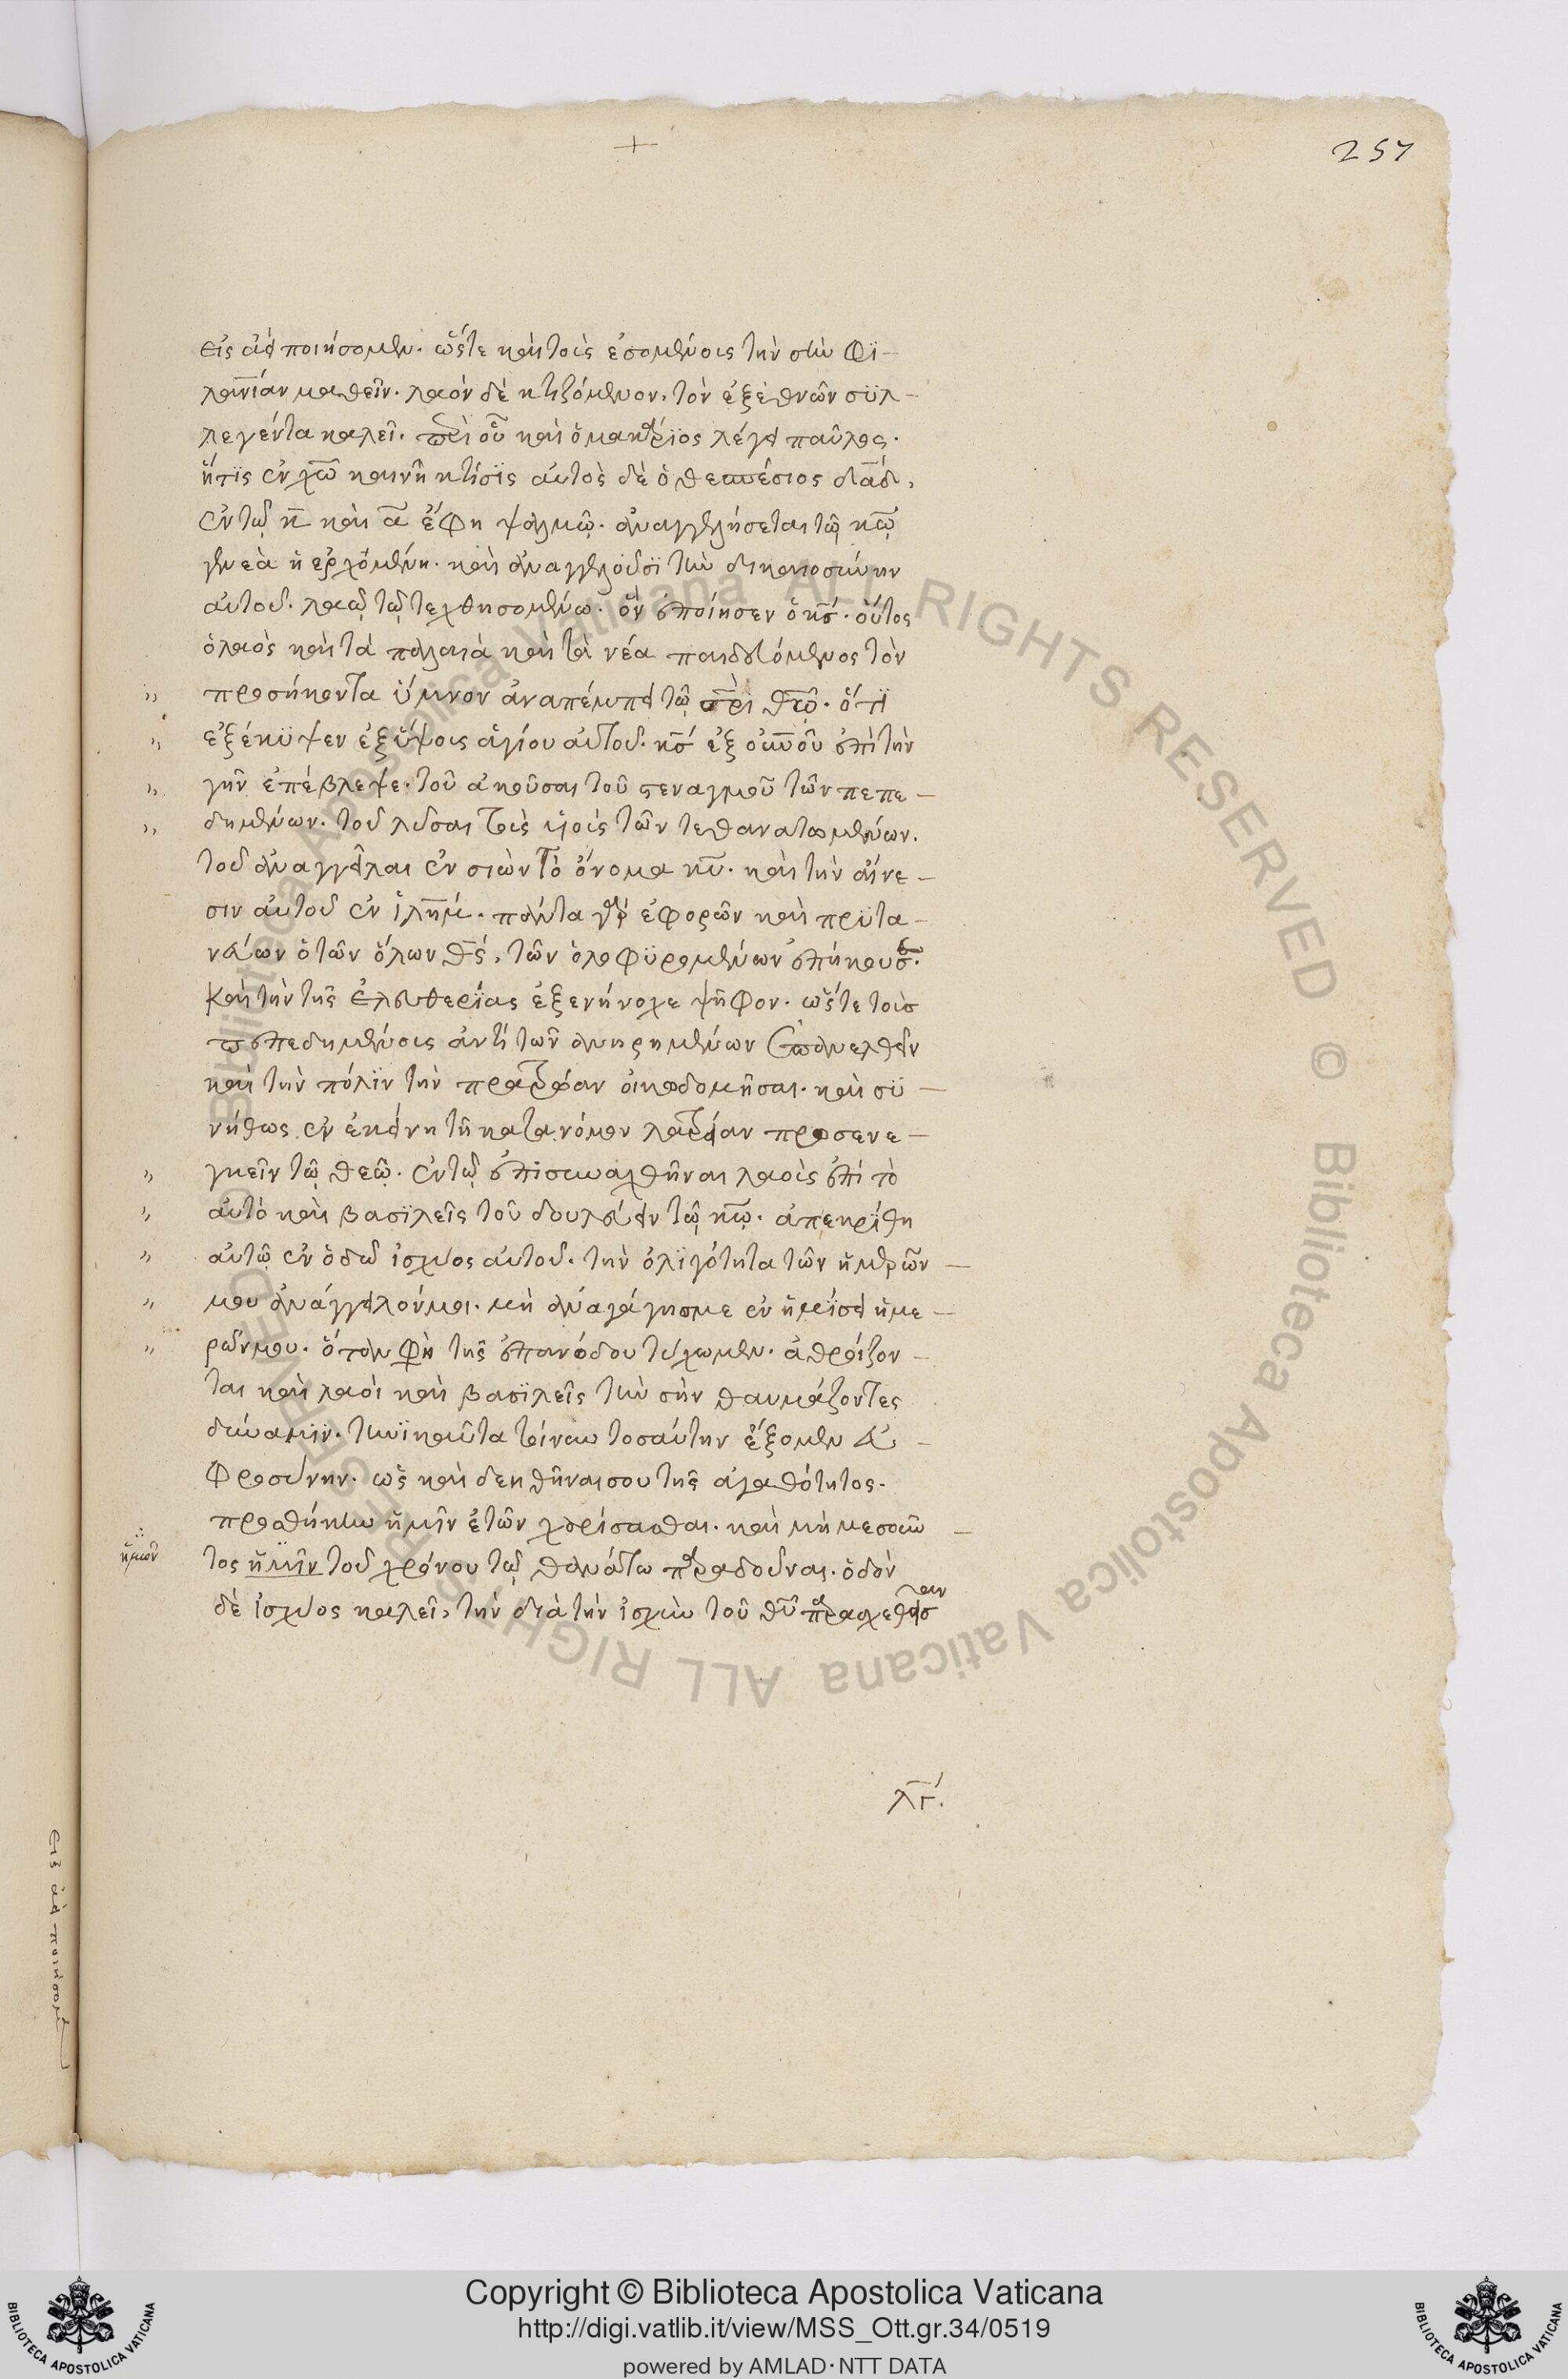 257
εἰς ἀεὶ ποιήσομεν. ὥστε καὶ τοῖς ἐσομένοις τὴν σὴν φϊ-
λανίαν μαθεῖν. λαὸν δὲ κτιζόμενον, τὸν ἐξ ἐθνῶν συλ-
λεγέντα καλεῖ. περὶ οὗ καὶ ὁ μακάριος λέγει παῦλος.
ἥτις ἐν χω καινὴ κτίσις αὐτὸς δὲ ὁ θεσπέσιος δαδ,
ἐν τῷ κ καὶ α ἔφη ψαλμῷ. ἀναγγελήσεται τῷ κω
γενεὰ ἡ ἐρχομένη. καὶ ἀναγγελοῦσι τὴν δικαιοσύνην
αὐτοῦ. λαῷ τῷ τεχθησομένω. ὃν ἐποίησεν ὁ κς. οὗτος
ὁ λαὸς καὶ τὰ παλαιὰ καὶ τὰ νέα παιδευόμενος τὸν
προσήκοντα ὕμνον ἀναπέμπει τῷ πρι θεῷ. ὅτι
ἐξέκυψεν ἐξ ὕψους ἁγίου αὐτοῦ. κς ἐξ οὐνοῦ ἐπὶ τὴν
γῆν ἐπέβλεψε. τοῦ ἀκοῦσαι τοῦ στεναγμοῦ τῶν πεπε-
δημένων. τοῦ λῦσαι τοὺς υἱοὺς τῶν τεθανατωμένων.
τοῦ ἀναγγεῖλαι ἐν σιὼν τὸ ὄνομα κυ. καὶ τὴν αἴνε-
σιν αὐτοῦ ἐν ἱλημ. πάντα γὰρ ἐφορῶν καὶ πρυτα-
νεύων ὁ τῶν ὅλων θς, τῶν ὀλοφυρομένων ἐπήκουσε.
καὶ τὴν τῆς ἐλευθερίας ἐξενήνοχε ψῆφον. ὥστε τοὺς
πεπεδημένους ἀντὶ τῶν ἀνῃρημένων ἐπανελθεῖν
καὶ τὴν πόλιν τὴν πρατρῴαν οἰκοδομῆσαι. καὶ συ-
νήθως ἐν ἐκείνη τὴν κατανόμον λατρείαν προσενε-
γκεῖν τῷ θεῷ. ἐν τῷ ἐπισυναχθῆναι λαοὺς ἐπὶ τὸ
αὐτὸ καὶ βασιλεῖς τοῦ δουλεύειν τῷ κω. ἀπεκρίθη
αὐτῷ ἐν ὁδῷ ἰσχύος αὐτοῦ. τὴν ὀλιγότητα τῶν ἡμερῶν
μου ἀνάγγειλόν μοι. μὴ ἀναγάγης με ἐν ἡμίσει ἡμε-
ρῶν μου. ὅταν φησὶ τῆς ἐπανόδου τύχωμεν. ἀθροίζον-
ται καὶ λαοὶ καὶ βασιλεῖς τὴν σὴν θαυμάζοντες
δύναμιν. τηνικαῦτα τοίνυν τοσαύτην ἕξομεν εὐ-
φροσύνην. ὡς καὶ δεηθῆναι σου τῆς ἀγαθότητος.
προσθήκην ἡμῖν ἐτῶν χαρίσασθαι. καὶ μὴ μεσοῦν-
ἡμῶν
τος ἡμῖν τοῦ χρόνου τῷ θανάτω παραδοῦναι. ὁδὸν
δὲ ἰσχύος καλεῖ, τὴν διὰ τὴν ἰσχὺν τοῦ θυ παρασχεθεῖσαν
λγ.
εἰς ἀεὶ ποιήσομεν
Copyright © Biblioteca Apostolica Vaticana
http://digi.vatlib.it/view/MSS_Ott.gr.34/0519
powered by AMLAD·NTT DATA
BIBLIOTECA APOSTOLICA VATICANA
BIBLIOTECA APOSTOLICA VATICANA
© Biblioteca Apostolica Vaticana ALL RIGHTS RESERVED